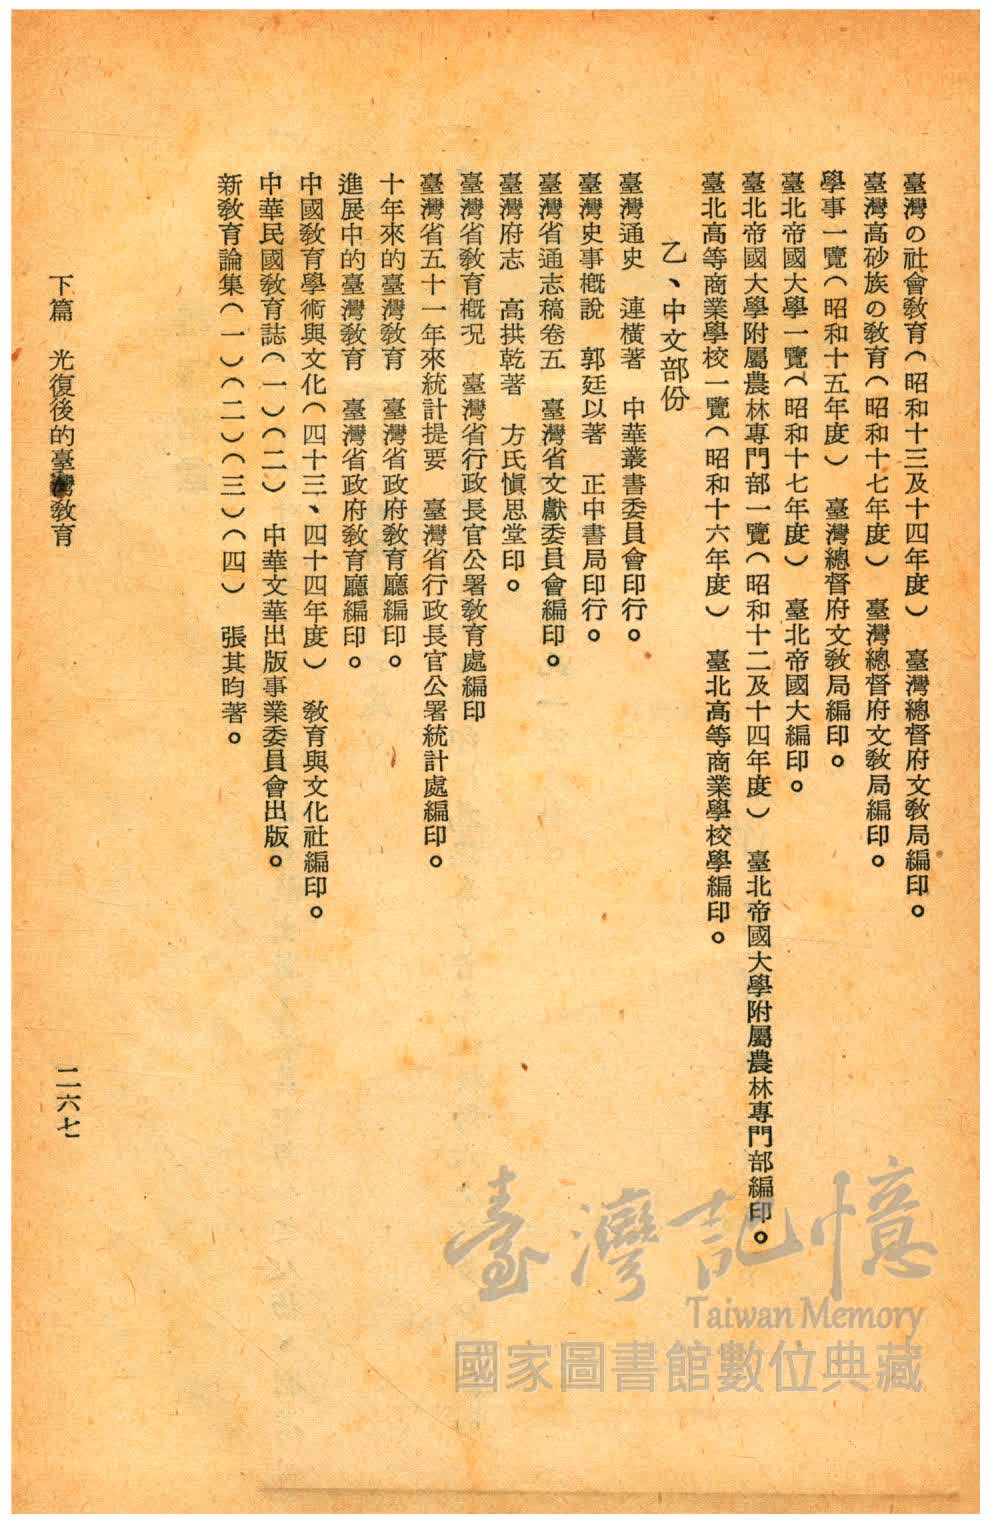 臺灣の社會教育（昭和十三及十四年度）　臺灣總督府文教局編印。
臺灣高砂族の教育（昭和十七年度）　臺灣總督府文教局編印。
學事一覽（昭和十五年度）　臺灣總督府文教局編印。
臺北帝國大學一覽（昭和十七年度）　臺北帝國大編印。
臺北帝國大學附屬農林專門部一覽（昭和十二及十四年度）　臺北帝國大學附屬農林專門部編印。
臺北高等商業學校一覽（昭和十六年度）　臺北高等商業學校學編印。
乙、中文部份
臺灣通史　連橫著　中華叢書委員會印行。
臺灣史事概說　郭廷以著　正中書局印行。
臺灣省通志稿卷五　臺灣省文獻委員會編印。
臺灣府志　高拱乾著　方氏愼思堂印。
臺灣省教育概況　臺灣省行政長官公署教育處編印
臺灣省五十一年來統計提要　臺灣省行政長官公署統計處編印。
十年來的臺灣教育　臺灣省政府教育廳編印。
進展中的臺灣教育　臺灣省政府教育廳編印。
中國教育學術與文化（四十三、四十四年度）　教育與文化社編印。
中華民國教育誌（一）（二）　中華文華出版事業委員會出版。
新教育論集（一）（二）（三）（四）　張其昀著。
下篇　光復後的臺灣教育
二六七
臺灣記憶
Taiwan Memory
國家圖書館數位典藏